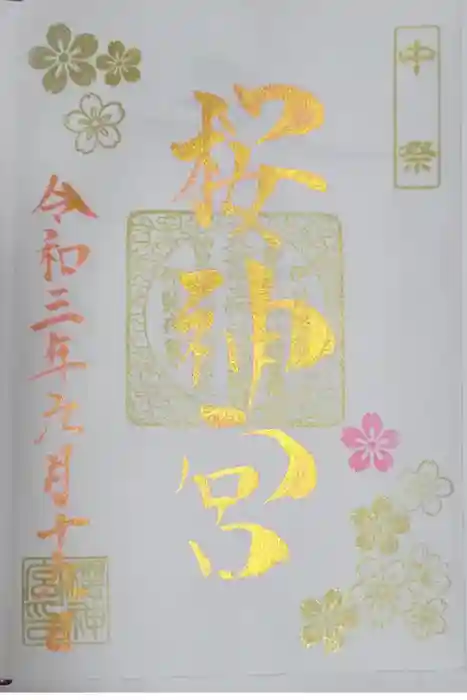 中祭
桜神宮
令和三年九月十五日